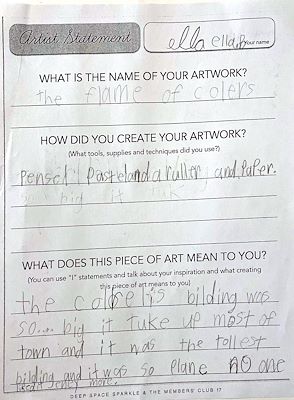 Artist Statement
ella ella B
Your name
WHAT IS THE NAME OF YOUR ARTWORK?
the flame of colers
HOW DID YOU CREATE YOUR ARTWORK?
(What tools, supplies and techniques did you use?)
Pensel Pasteland a ruller and Paper.
so big it tuk
WHAT DOES THIS PIECE OF ART MEAN TO YOU?
(You can use "I" statements and talk about your inspiration and what creating
this piece of art means to you)
the is bilding was
so... big it tuke up most of
town and it was the tallest
bilding and it was so Plane no one
DEEP SPACE SPARKLE & THE MEMBERS' CLUB 17